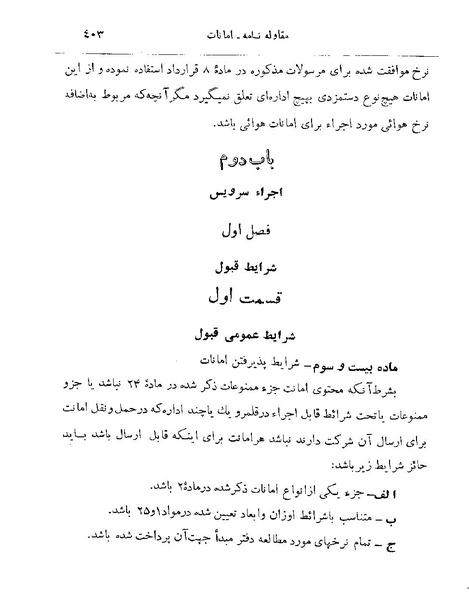 مقاوله نامه - امانات ٤٠٣
نرخ موافقت شده برای مرسولات مذکوره در مادهٔ ۸ قرارداد استفاده نموده و از این
امانات هیچ‌نوع دستمزدی بهیچ اداره‌ای تعلق نمیگیرد مگر آنچه‌که مربوط به‌اضافه
نرخ هوائی مورد اجراء برای امانات هوائی باشد.
باب دوم
اجراء سرویس
فصل اول
شرایط قبول
قسمت اول
شرایط عمومی قبول
ماده بیست و سوم - شرایط پذیرفتن امانات
بشرط‌آنکه محتوی امانت جزء ممنوعات ذکر شده در مادهٔ ۲۴ نباشد یا جزو
ممنوعات یاتحت شرائط قابل اجراء درقلمرو یك یاچند اداره‌که درحمل‌ونقل امانت
برای ارسال آن شرکت دارند نباشد هرامانت برای اینکه قابل ارسال باشد بـاید
حائز شرایط زیرباشد:
الف - جزء یکی ازانواع امانات ذکرشده درمادهٔ ۲ باشد.
ب - متناسب باشرائط اوزان وابعاد تعیین شده درمواد۱و۲۵ باشد.
ج - تمام نرخهای مورد مطالعه دفتر مبدأ جهت‌آن پرداخت شده باشد.